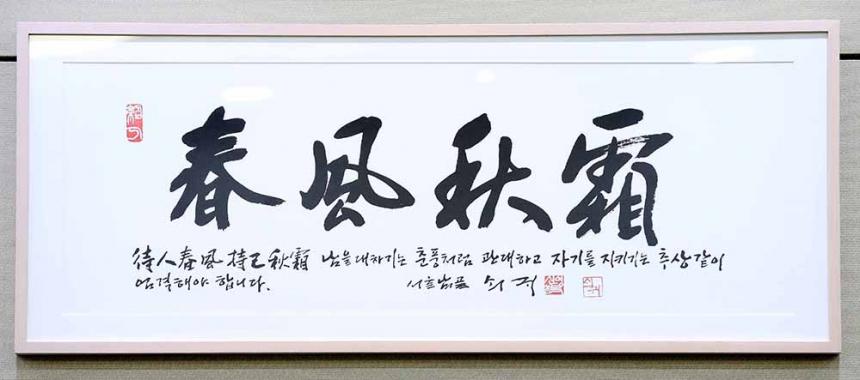 春風秋霜
待人春風 持己秋霜 남을 대하기는 춘풍처럼 관대하고 자기를 지키기는 추상같이
엄격해야 합니다.
쇠귀